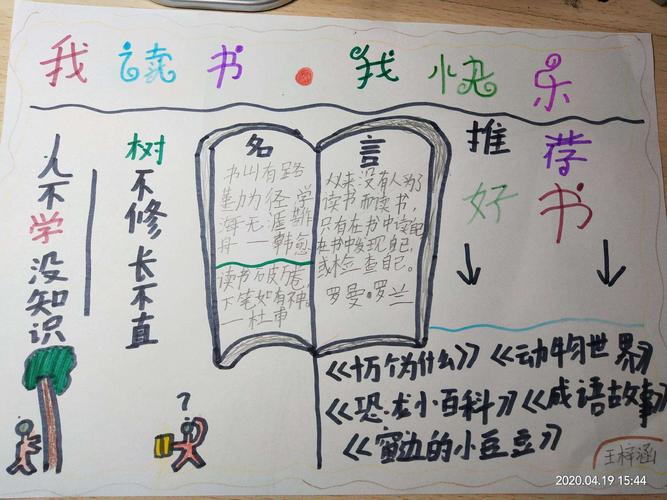 我读书·我快乐
树不修长不直
人不学没知识
名言
书山有路
勤为径 学
海无涯
舟 — 韩愈
读书破万卷
下笔如有神。
— 杜甫
从来没有人为了
读书而读书，
只有在书中读自己
在书中发现自己，
或检查自己。
罗曼·罗兰
推荐
好书
《十万个为什么》《动物世界》
《恐龙小百科》《成语故事》
《窗边的小豆豆》
?
王梓涵
2020.04.19 15:44